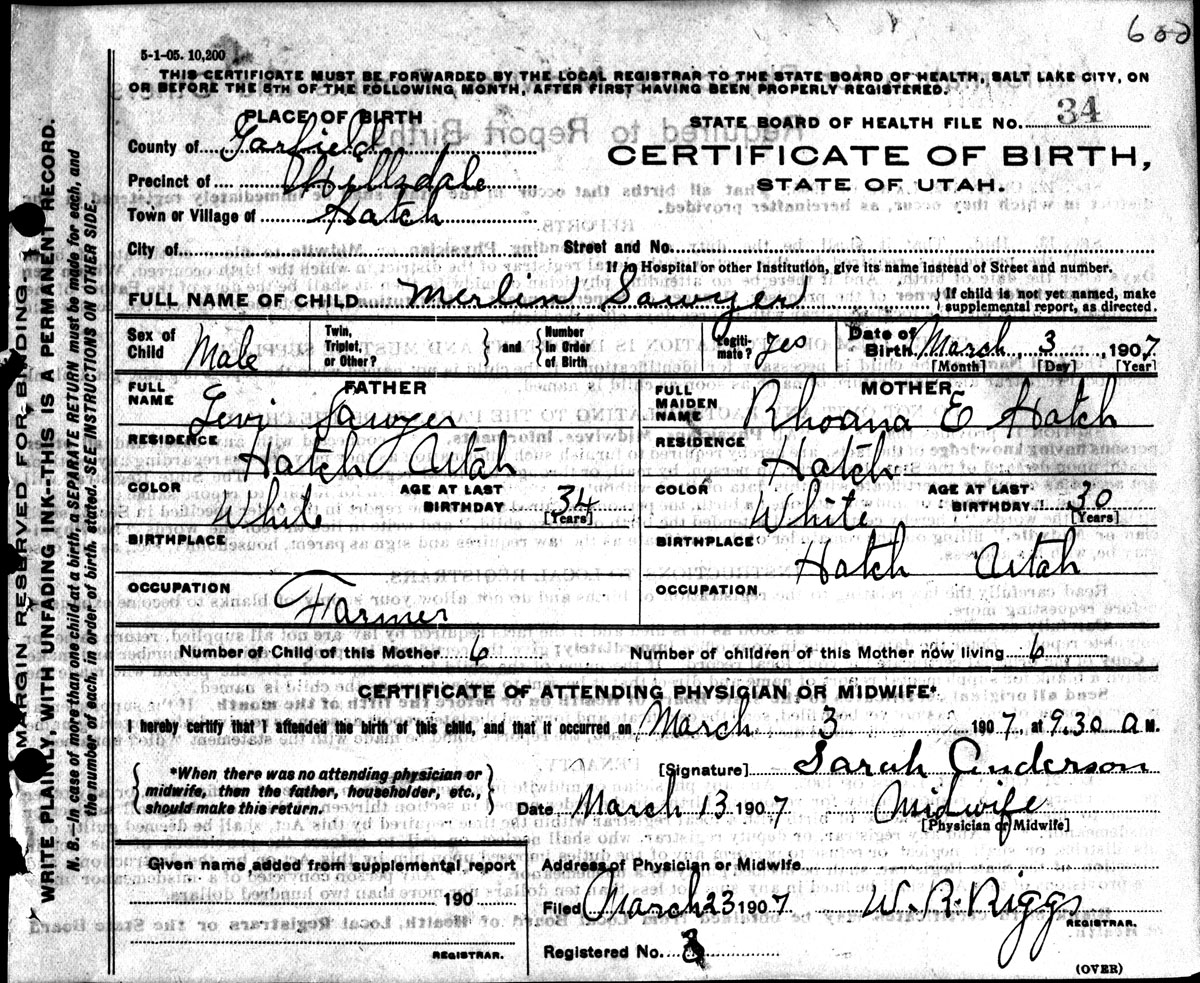 600
5-1-05. 10,200
THIS CERTIFICATE MUST BE FORWARDED BY THE LOCAL REGISTRAR TO THE STATE BOARD OF HEALTH, SALT LAKE CITY, ON
OR BEFORE THE 5TH OF THE FOLLOWING MONTH, AFTER FIRST HAVING BEEN PROPERLY REGISTERED.
PLACE OF BIRTH
County of Garfield
Precinct of Hillsdale
Town or Village of Hatch
City of
STATE BOARD OF HEALTH FILE NO. 34
CERTIFICATE OF BIRTH,
STATE OF UTAH.
Street and No.
If in Hospital or other Institution, give its name instead of Street and number.
FULL NAME OF CHILD Merlin Sawyer } If child is not yet named, make supplemental report, as directed.
Sex of Child Male
Twin, Triplet, or Other? } and { Number in Order of Birth
Legitimate? yes
Date of Birth March 3, 1907
[Month] [Day] [Year]
FATHER
FULL NAME Levi Sawyer
RESIDENCE Hatch Utah
COLOR White AGE AT LAST BIRTHDAY 34 [Years]
BIRTHPLACE
OCCUPATION Farmer
MOTHER
FULL MAIDEN NAME Rhoana E Hatch
RESIDENCE Hatch
COLOR White AGE AT LAST BIRTHDAY 30 [Years]
BIRTHPLACE Hatch Utah
OCCUPATION
Number of Child of this Mother 6 Number of children of this Mother now living 6
CERTIFICATE OF ATTENDING PHYSICIAN OR MIDWIFE*
I hereby certify that I attended the birth of this child, and that it occurred on March 3 1907, at 9.30 a M.
{ *When there was no attending physician or
midwife, then the father, householder, etc.,
should make this return. }
[Signature] Sarah Anderson
Date March 13 1907 Midwife
[Physician or Midwife]
Given name added from supplemental report
190
REGISTRAR.
Address of Physician or Midwife
Filed March 23 1907 W. R. Riggs
REGISTRAR.
Registered No. 3
(OVER)
MARGIN RESERVED FOR BINDING.
WRITE PLAINLY, WITH UNFADING INK--THIS IS A PERMANENT RECORD.
N. B.--In case of more than one child at a birth, a SEPARATE RETURN must be made for each, and
the number of each, in order of birth, stated. SEE INSTRUCTIONS ON OTHER SIDE.